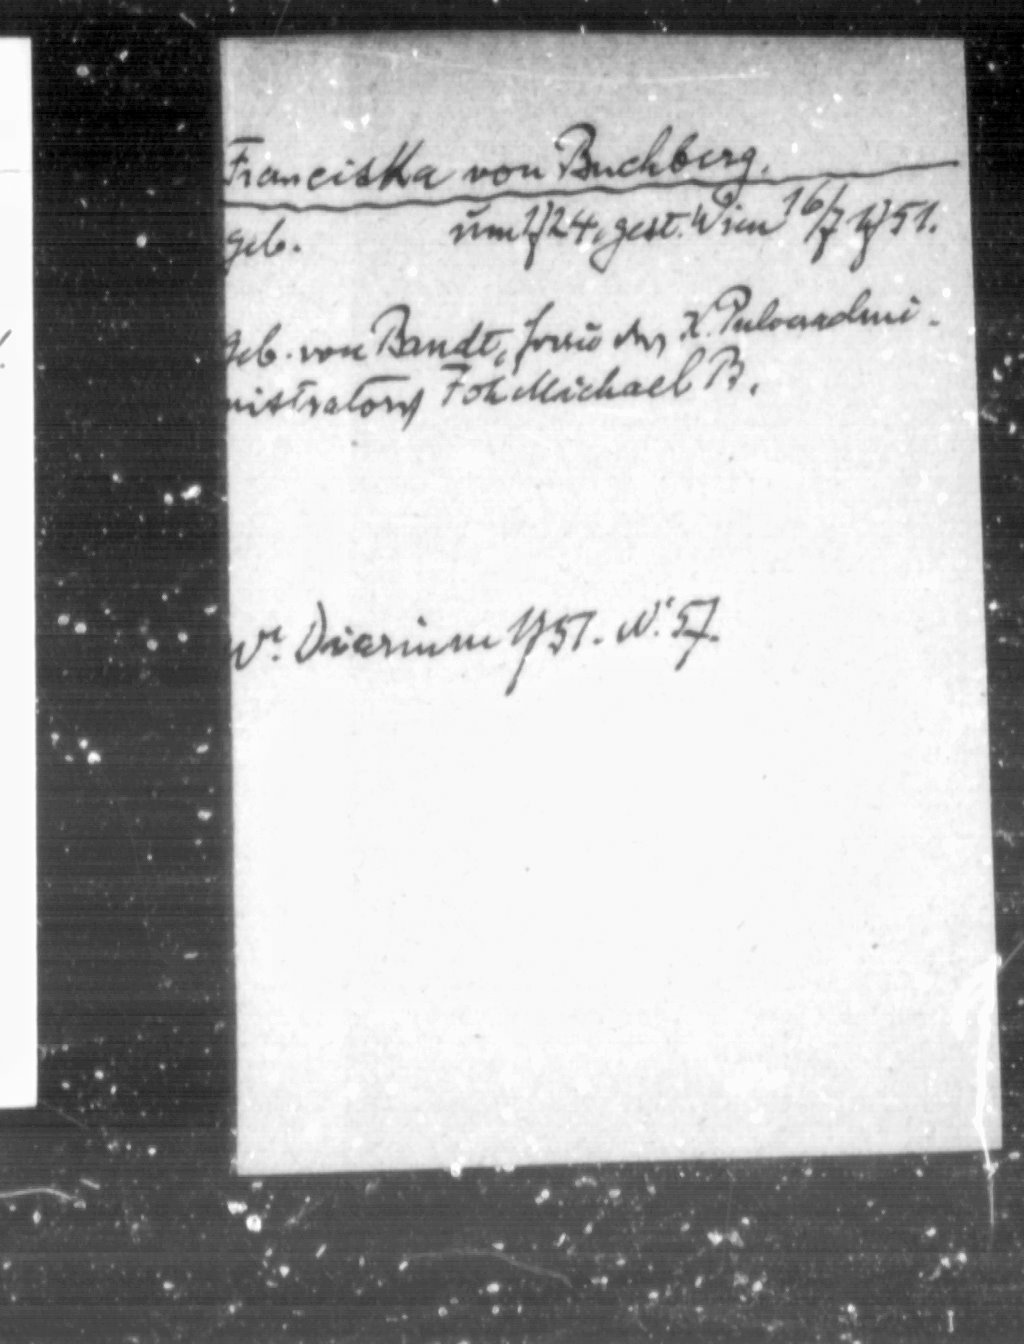 Franciska von Buchberg.
geb. um 1724, gest. Wien 16/7 1751.
Geb. von Bandt, Frau des K. Pulveradmi-
nistrators Joh Michael B.
Wr. Diarium 1751. Nr. 57.